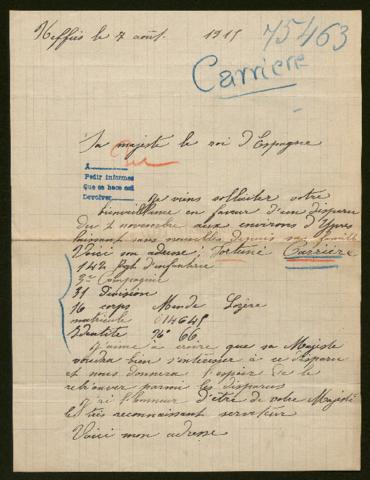 Neffiès le 7 août 1915
75463
Carriere
Sa majesté le roi d'Espagne
A
Pedir informes
Que se hace asi
Devolver
Je viens solliciter votre
bienveillance en faveur d'un disparu
du 2 novembre aux environs d'Ypres
laissant sans nouvelles depuis sa famille
Voici son adresse: Fortuné Carrière
142 Regt d'infanterie
3me Compagnie
31 Division
16 corps Mende Lozère
matricule 14645
Identité No 66
J'aime à croire que sa Majesté
voudra bien s'intéresser à ce disparu
et nous donnera l'espoir de le
retrouver parmi les disparus
J'ai l'honneur d'être de votre Majesté
le très reconnaissant serviteur
Voici mon adresse